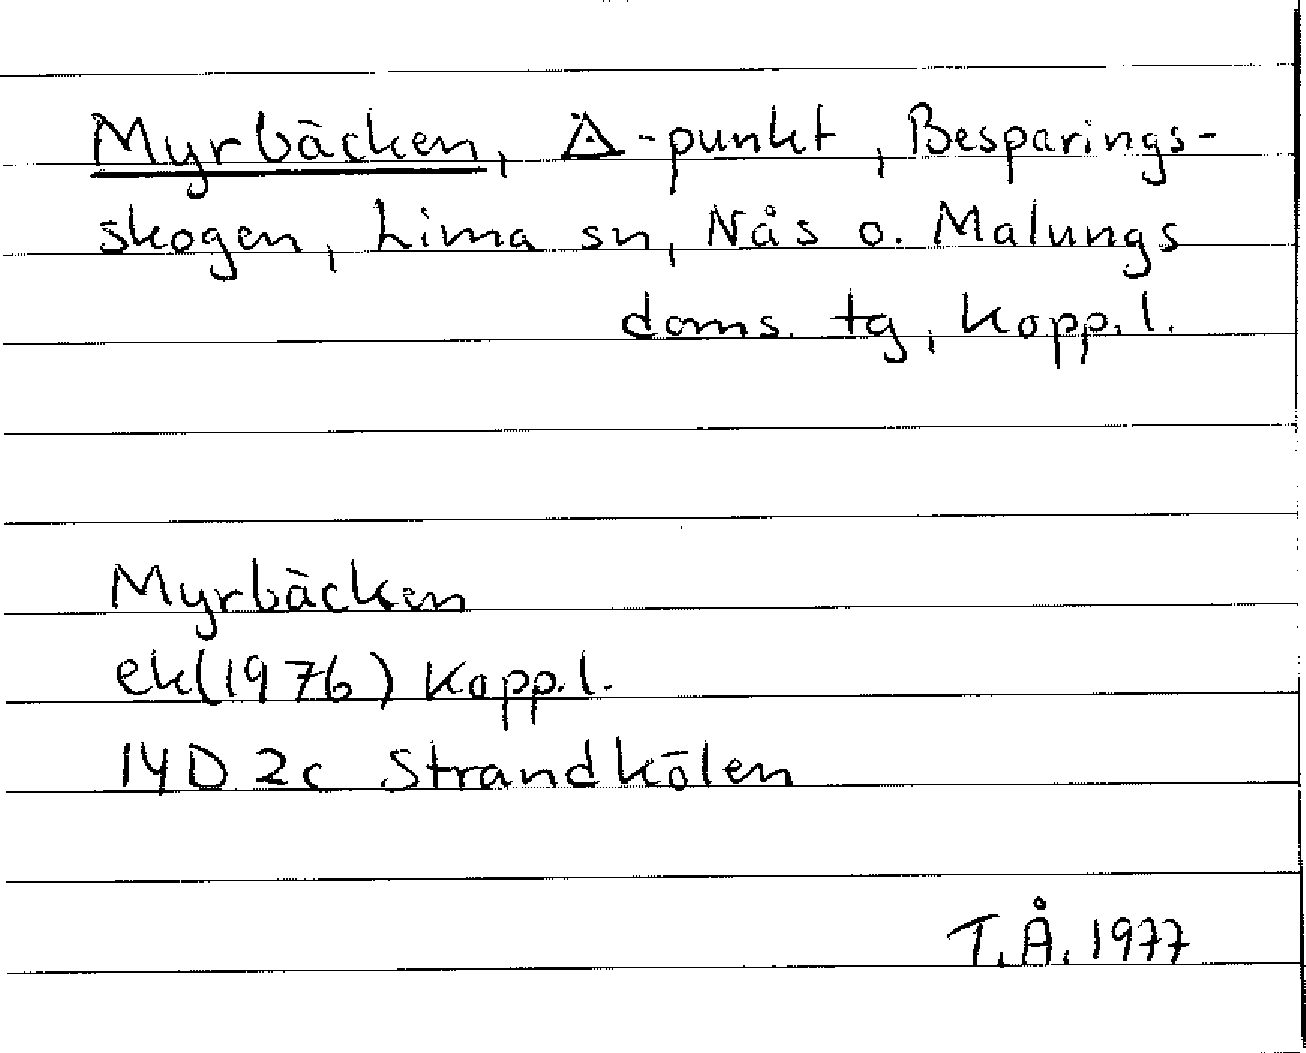 Myrbäcken, Δ-punkt, Besparings-
skogen, Lima sn, Nås o. Malungs
doms. tg, Kopp. l.
Myrbäcken
ek (1976) Kopp. l.
14D 2c Strandkölen
T.Å. 1977